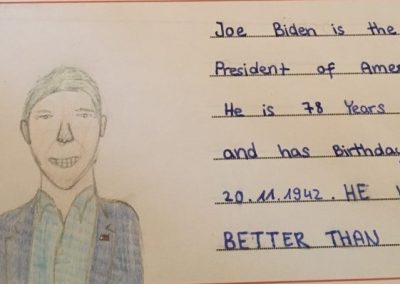 Joe Biden is the
President of Ame
He is 78 Years
and has Birthda
20.11.1942. HE
BETTER THAN